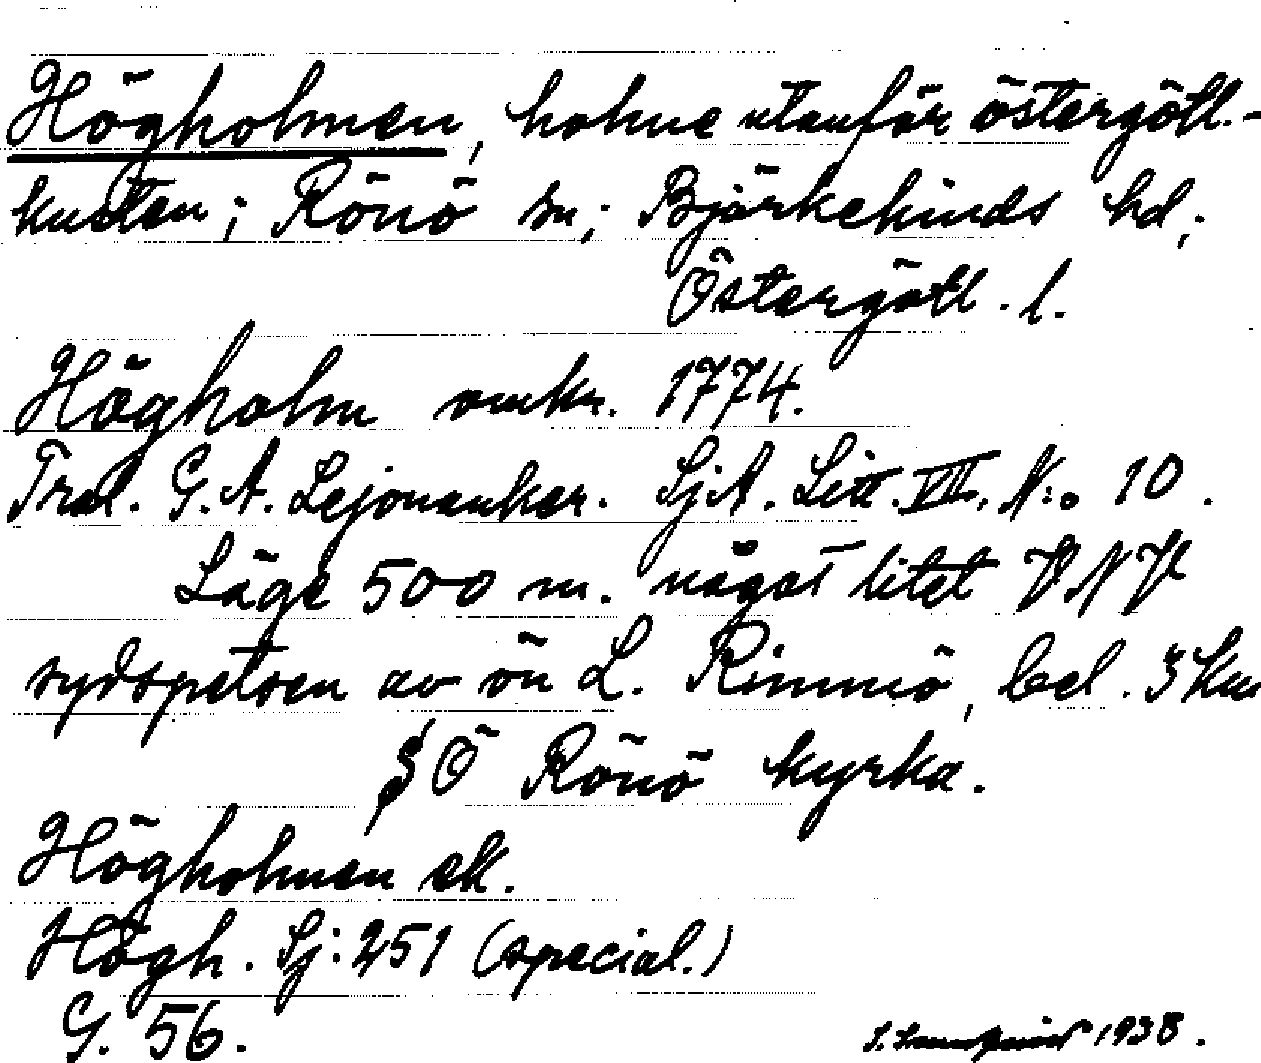 Högholmen, holme utanför östergötl.-
kusten; Rönö sn; Björkekinds hd;
Östergötl. l.
Högholm omkr. 1774.
Trol. G. A. Lejonanker. SjA. Litt. VII. N:o 10.
Läge 500 m. något litet VNV
sydspetsen av ön L. Rimmö, bel. 3 km
SÖ Rönö kyrka.
Högholmen ek.
Högh. Sj: 251 (special.)
G. 56.
1938.